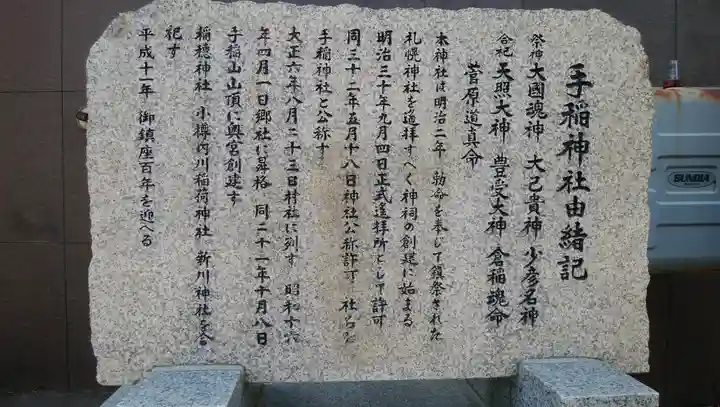 手稲神社由緒記
祭神 大國魂神 大己貴神 少彦名神
合祀 天照大神 豊受大神 倉稲魂命
菅原道真命
本神社は明治二年 勅命を奉じて鎮祭された
札幌神社を遥拝すへく神祠の創建に始まる
明治三十年九月四日正式遥拝所として許可
同三十二年五月十八日神社公称許可 社名を
手稲神社と公称す
大正六年八月二十三日村社に列す 昭和十六
年四月一日郷社に昇格 同二十一年十月八日
手稲山山頂に奥宮創建す
稲穂神社 小樽内川稲荷神社 新川神社を合
祀す
平成十一年 御鎮座百年を迎へる
SUNDIA